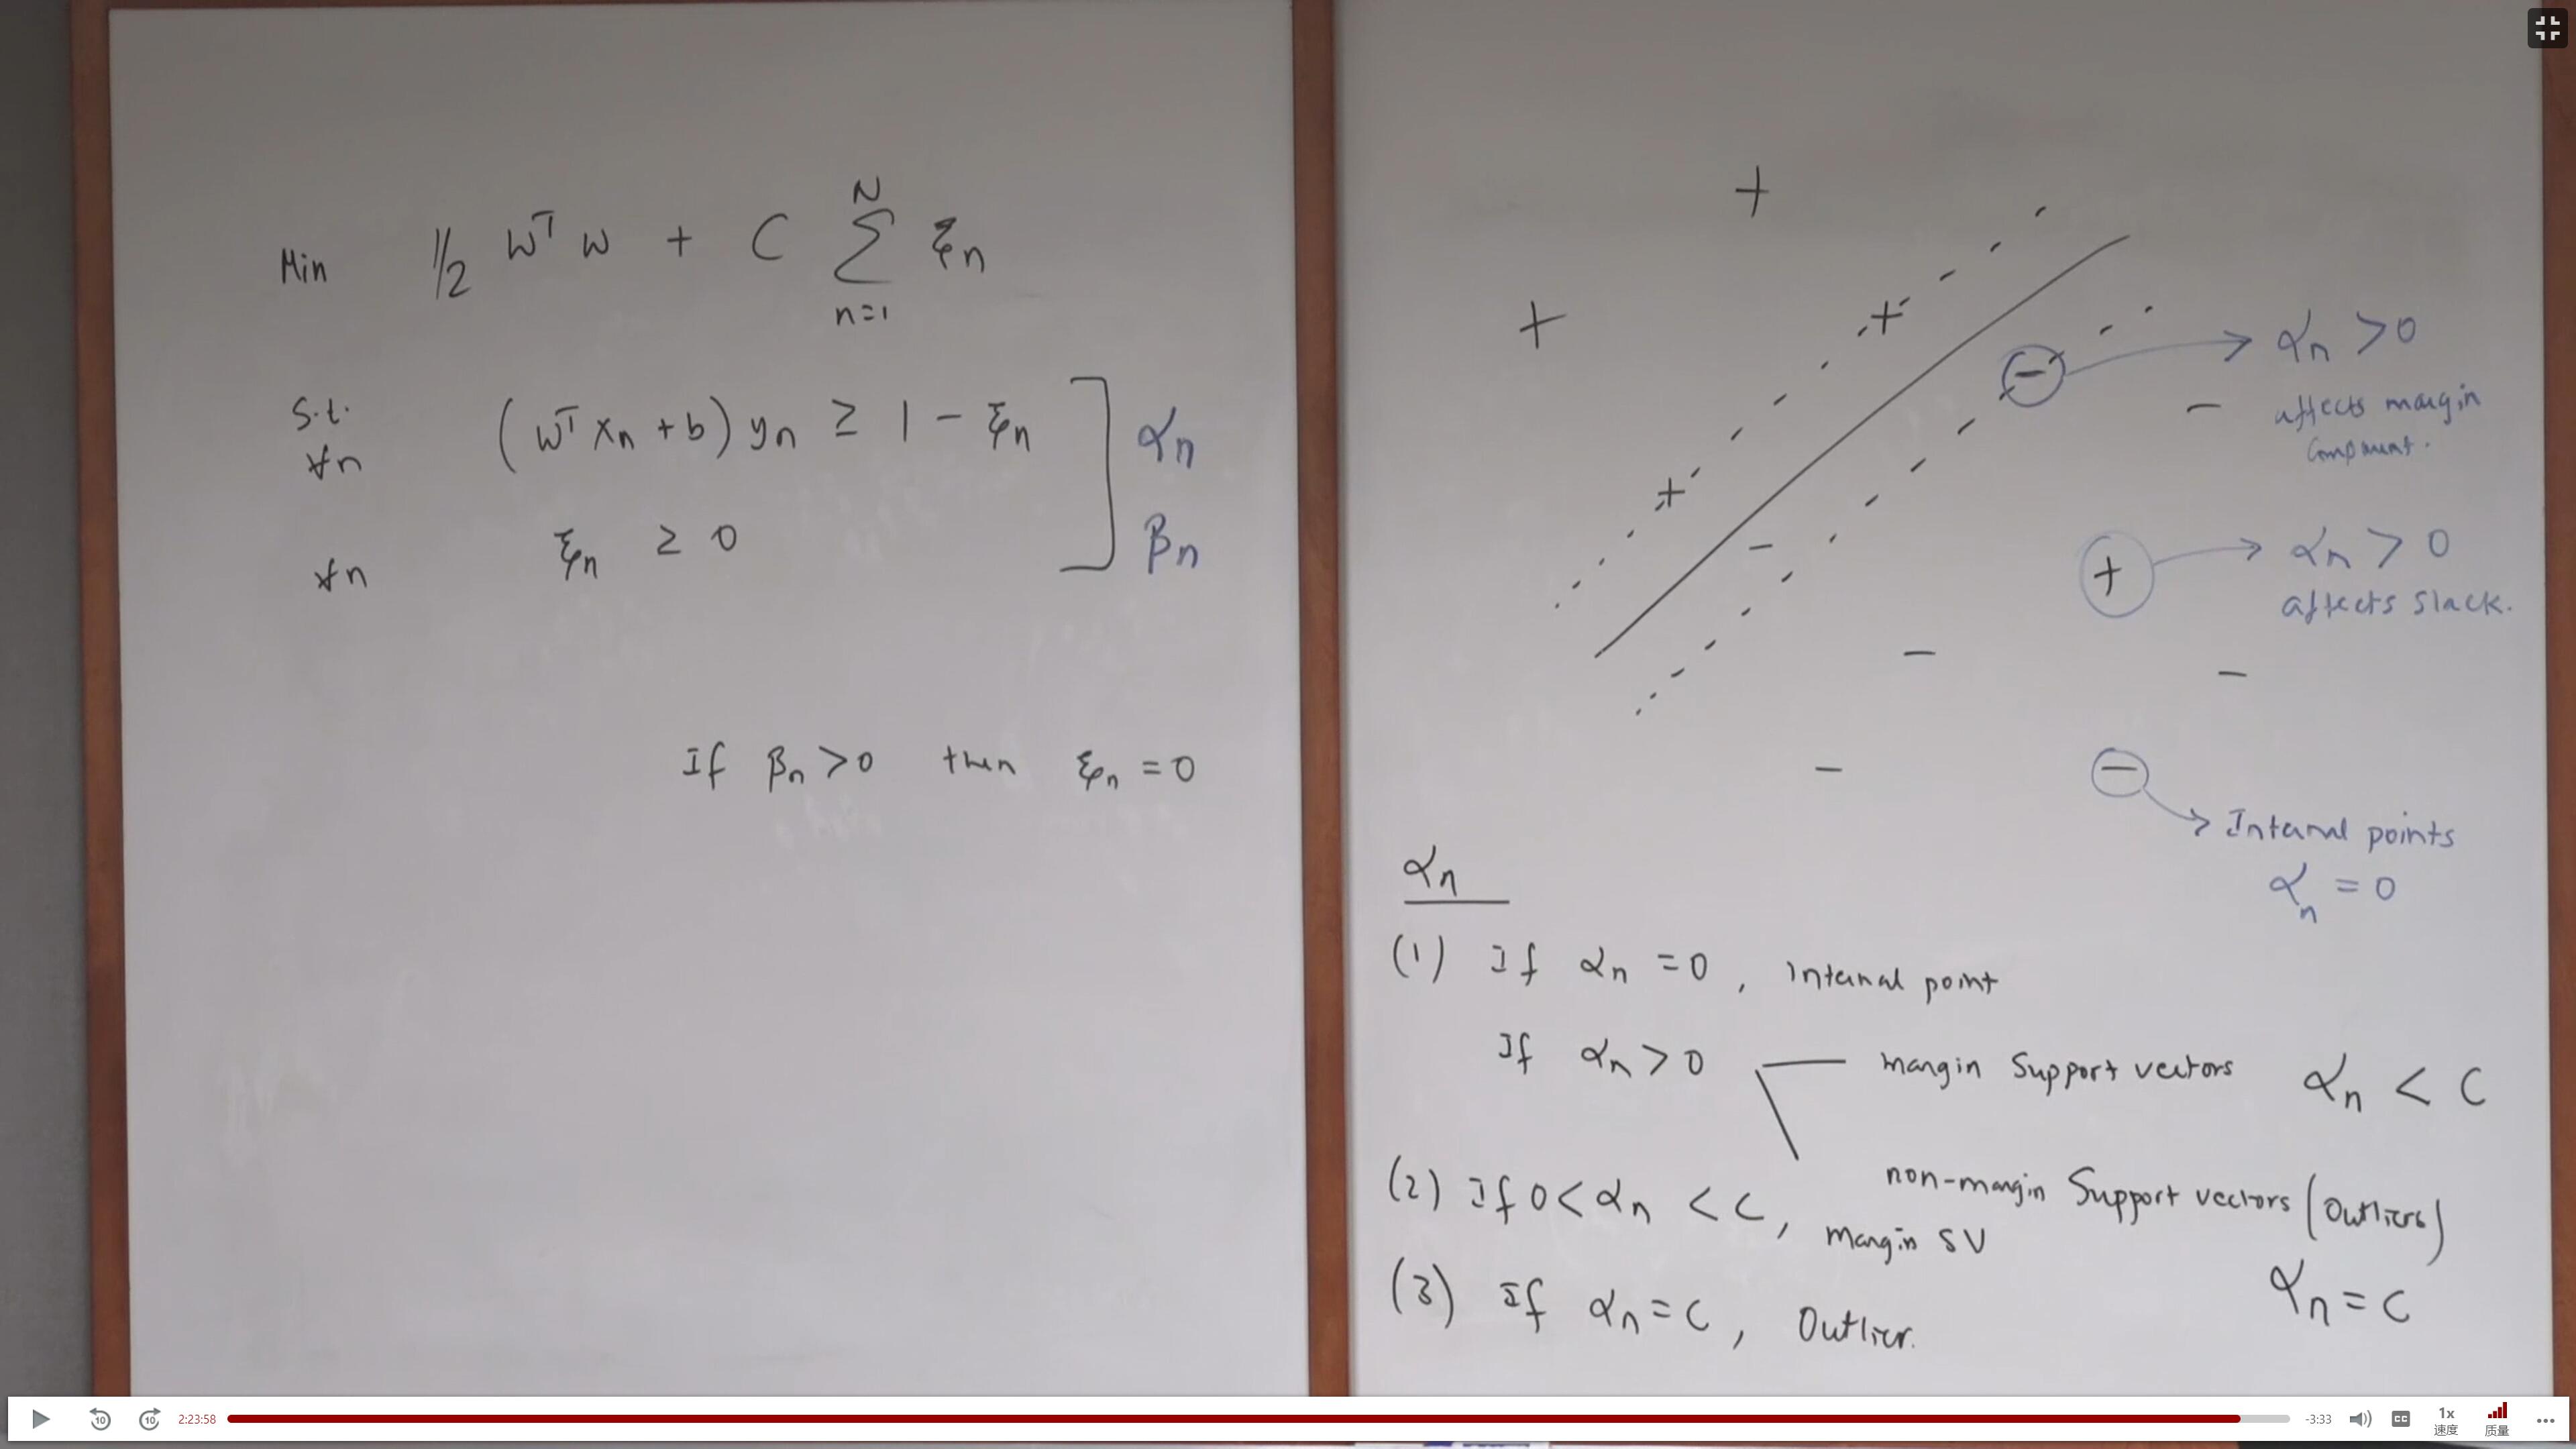 Min 1/2 wᵀ w + C ∑ ξn
N
n=1
s.t.
∀n (wᵀ xn + b) yn ≥ 1 - ξn ] αn
∀n ξn ≥ 0 βn
If βn > 0 then ξn = 0
αn > 0
affects margin
component.
αn > 0
affects slack.
Internal points
αn = 0
αn
(1) If αn = 0, internal point
If αn > 0 margin support vectors αn < C
non-margin support vectors (outliers)
αn = C
(2) If 0 < αn < C, margin SV
(3) If αn = C, Outlier.
10 10 2:23:58 -3:33 CC 1x 速度 质量